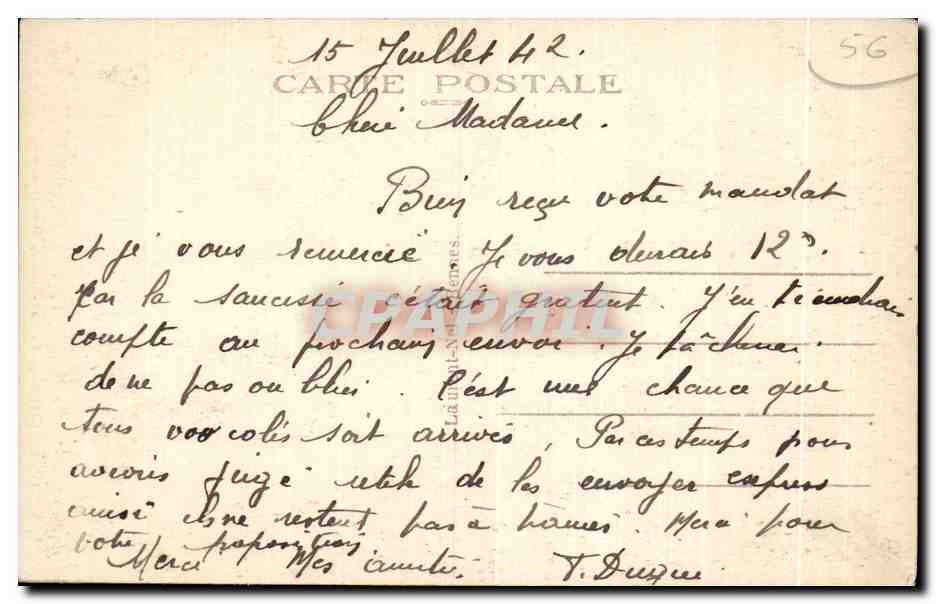 15 Juillet 42.
56
CARTE POSTALE
Chere Madame.
Bien reçu votre mandat
et je vous remercie. Je vous devrais 12
Car la saucisse c'était gratuit. J'en tiendrais
compte au prochain envoi. Je tâcherai
de ne pas oublier. C'est une chance que
tous vos colis soit arrivés, Par ces temps nous
avions jugé utile de les envoyer express
ainsi ils ne restent pas à trainer. Merci pour
votre proposition
Merci Mes amitiés.
Laurent-Nel
CPARPHIL